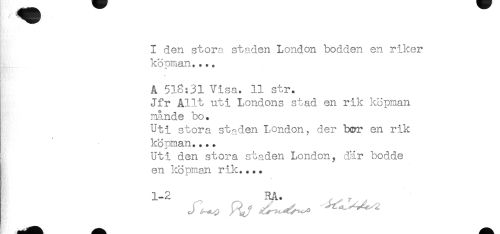 I den stora staden London bodden en riker
köpman....
A 518:31 Visa. 11 str.
Jfr Allt uti Londons stad en rik köpman
månde bo.
Uti stora staden London, der bor en rik
köpman....
Uti den stora staden London, där bodde
en köpman rik....
1-2 RA.
Svas På Londons slätter